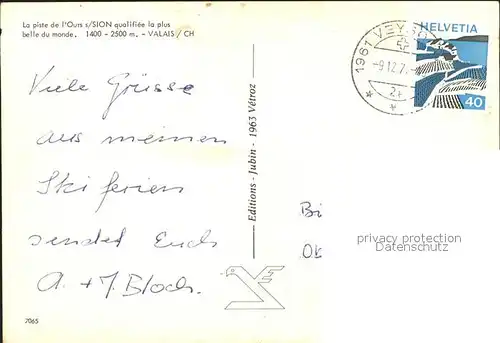 La piste de l'Ours s/SION qualifiée la plus
belle du monde. 1400 - 2500 m. - VALAIS / CH
HELVETIA
40
1961 VEYSO
-9.12.7
2+
Viele Grüsse
aus meinen
Skiferien
sendet Euch
A. + J. Bloch.
Editions - Jubin - 1963 Vétroz
Bi
Ob
privacy protection
Datenschutz
7065